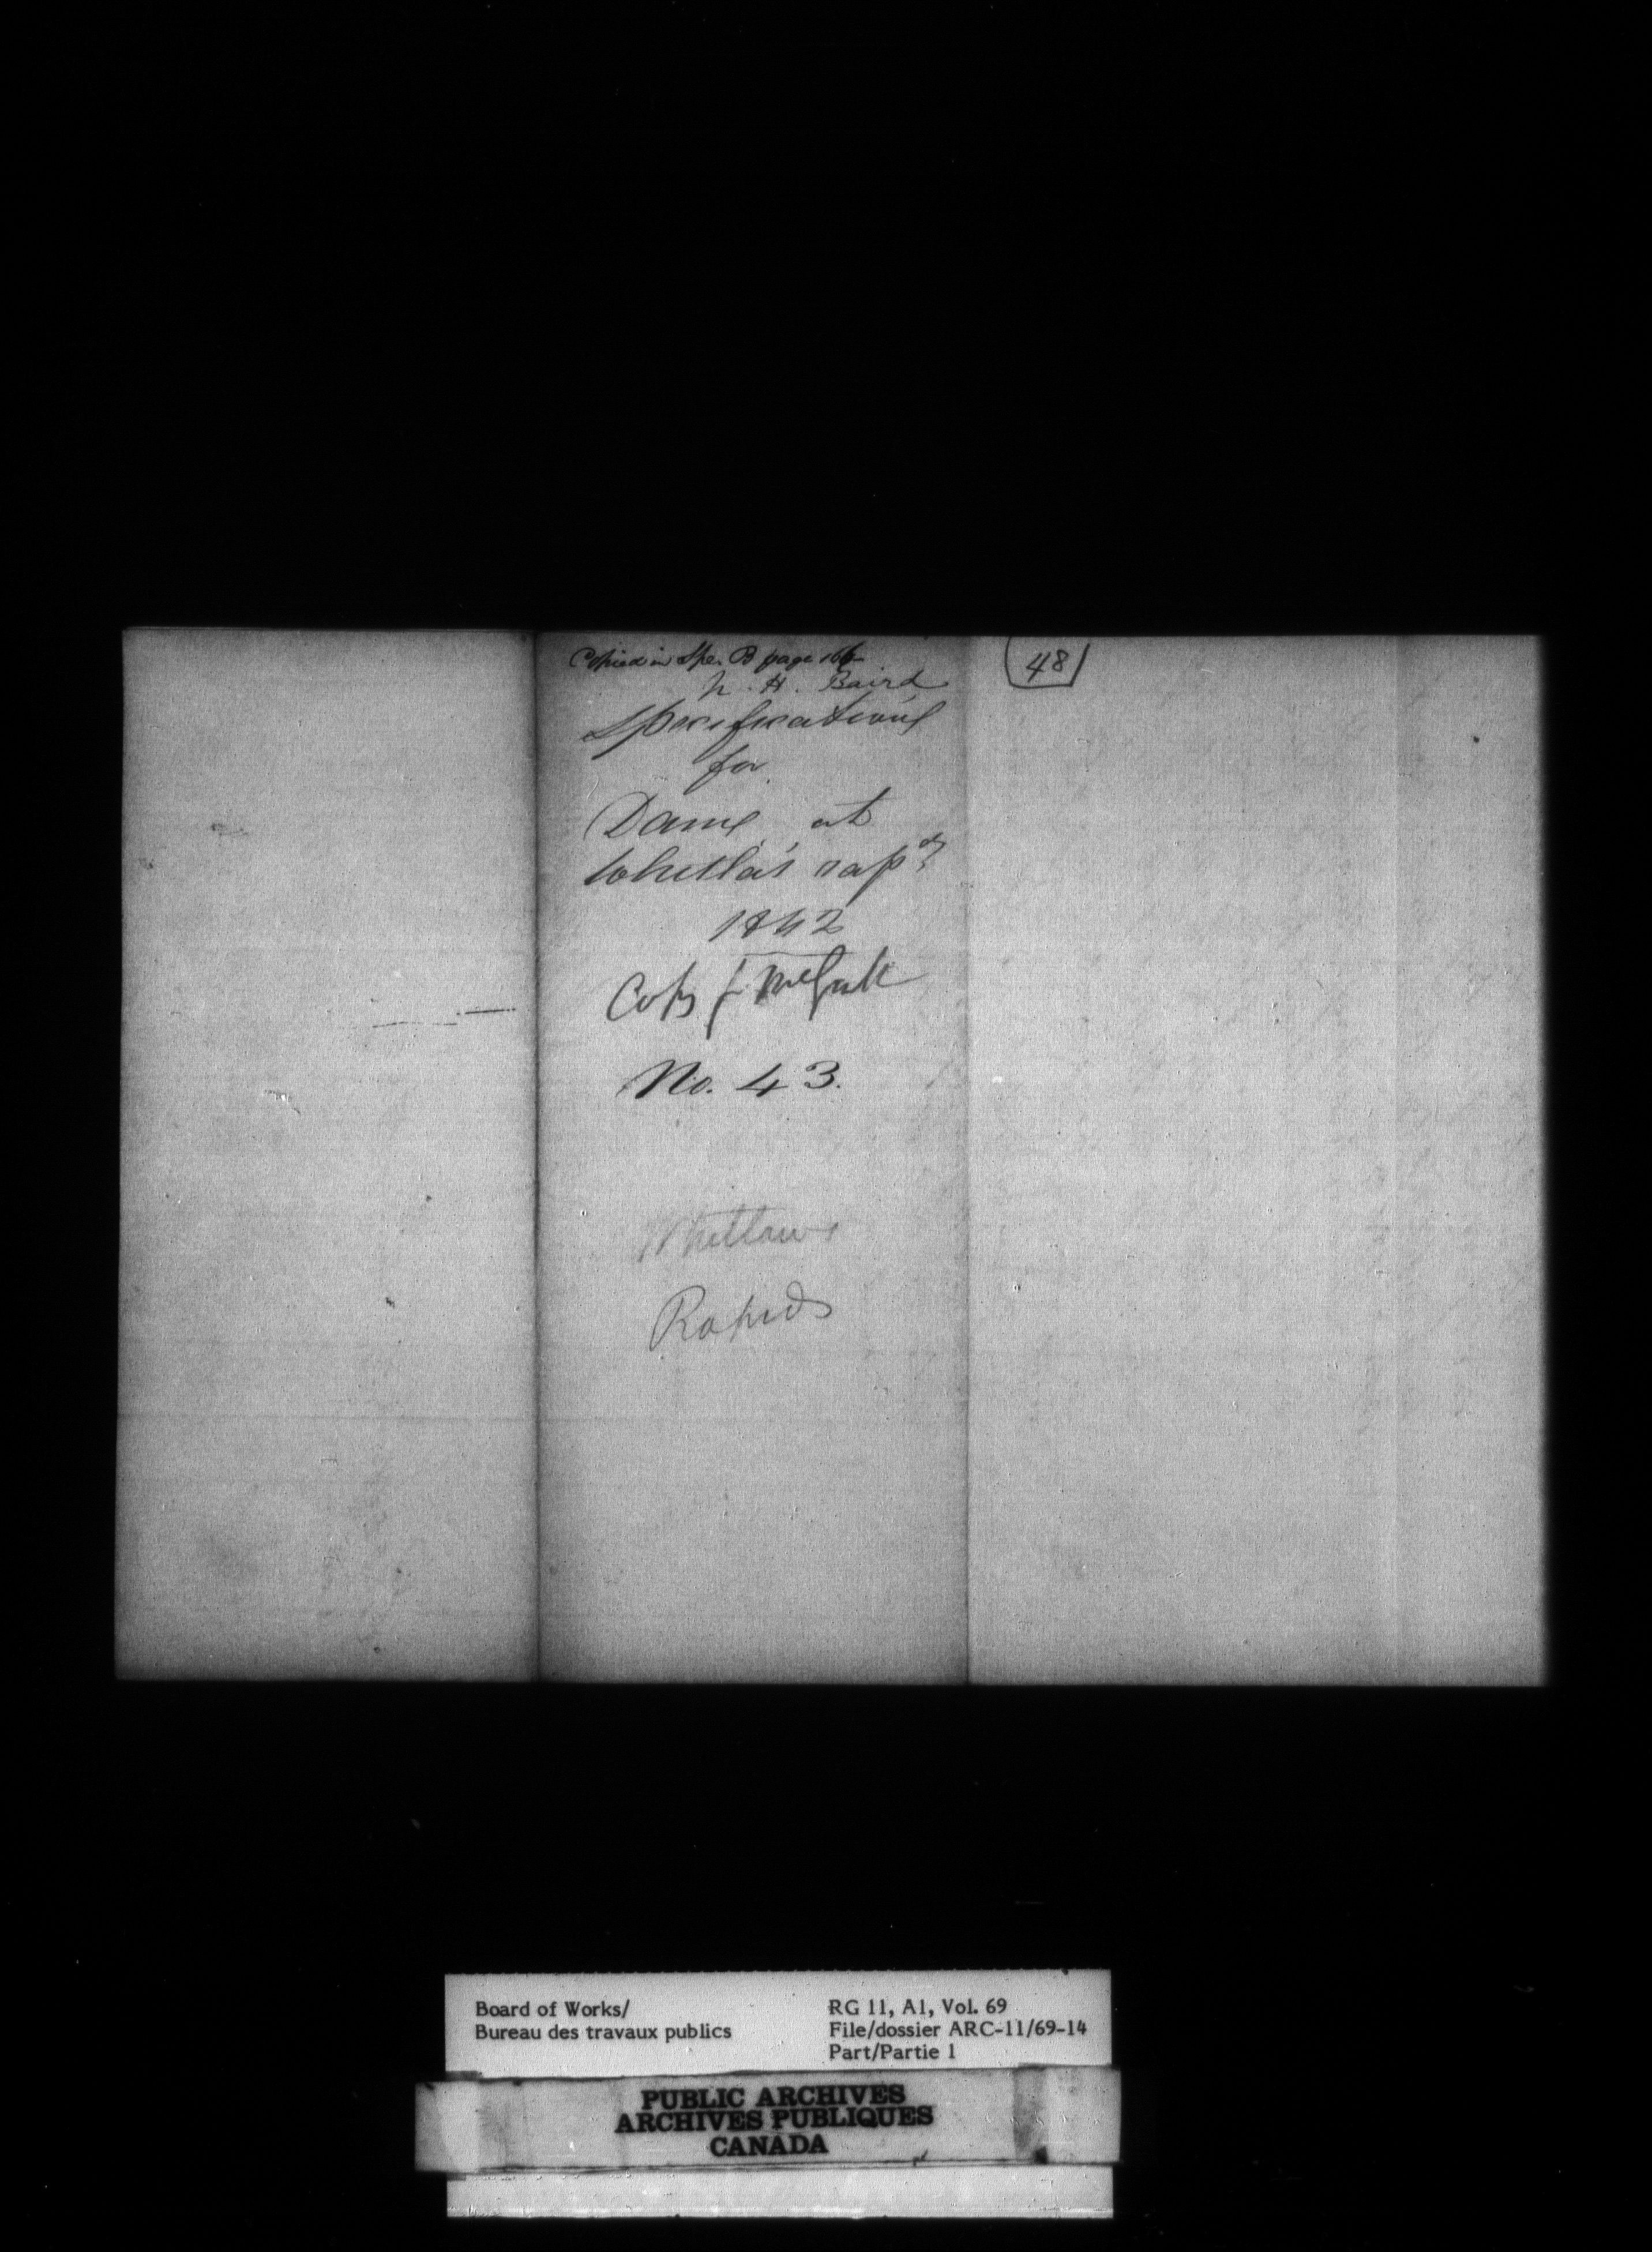 Copied in Spe. B page 166
N. H. Baird
Specifications
for
Dams at
Whitla's rapds
1842
Copy f
No. 43.
Whitlaws
Rapids
48
Board of Works/
Bureau des travaux publics
RG 11, A1, Vol. 69
File/dossier ARC-11/69-14
Part/Partie 1
PUBLIC ARCHIVES
ARCHIVES PUBLIQUES
CANADA